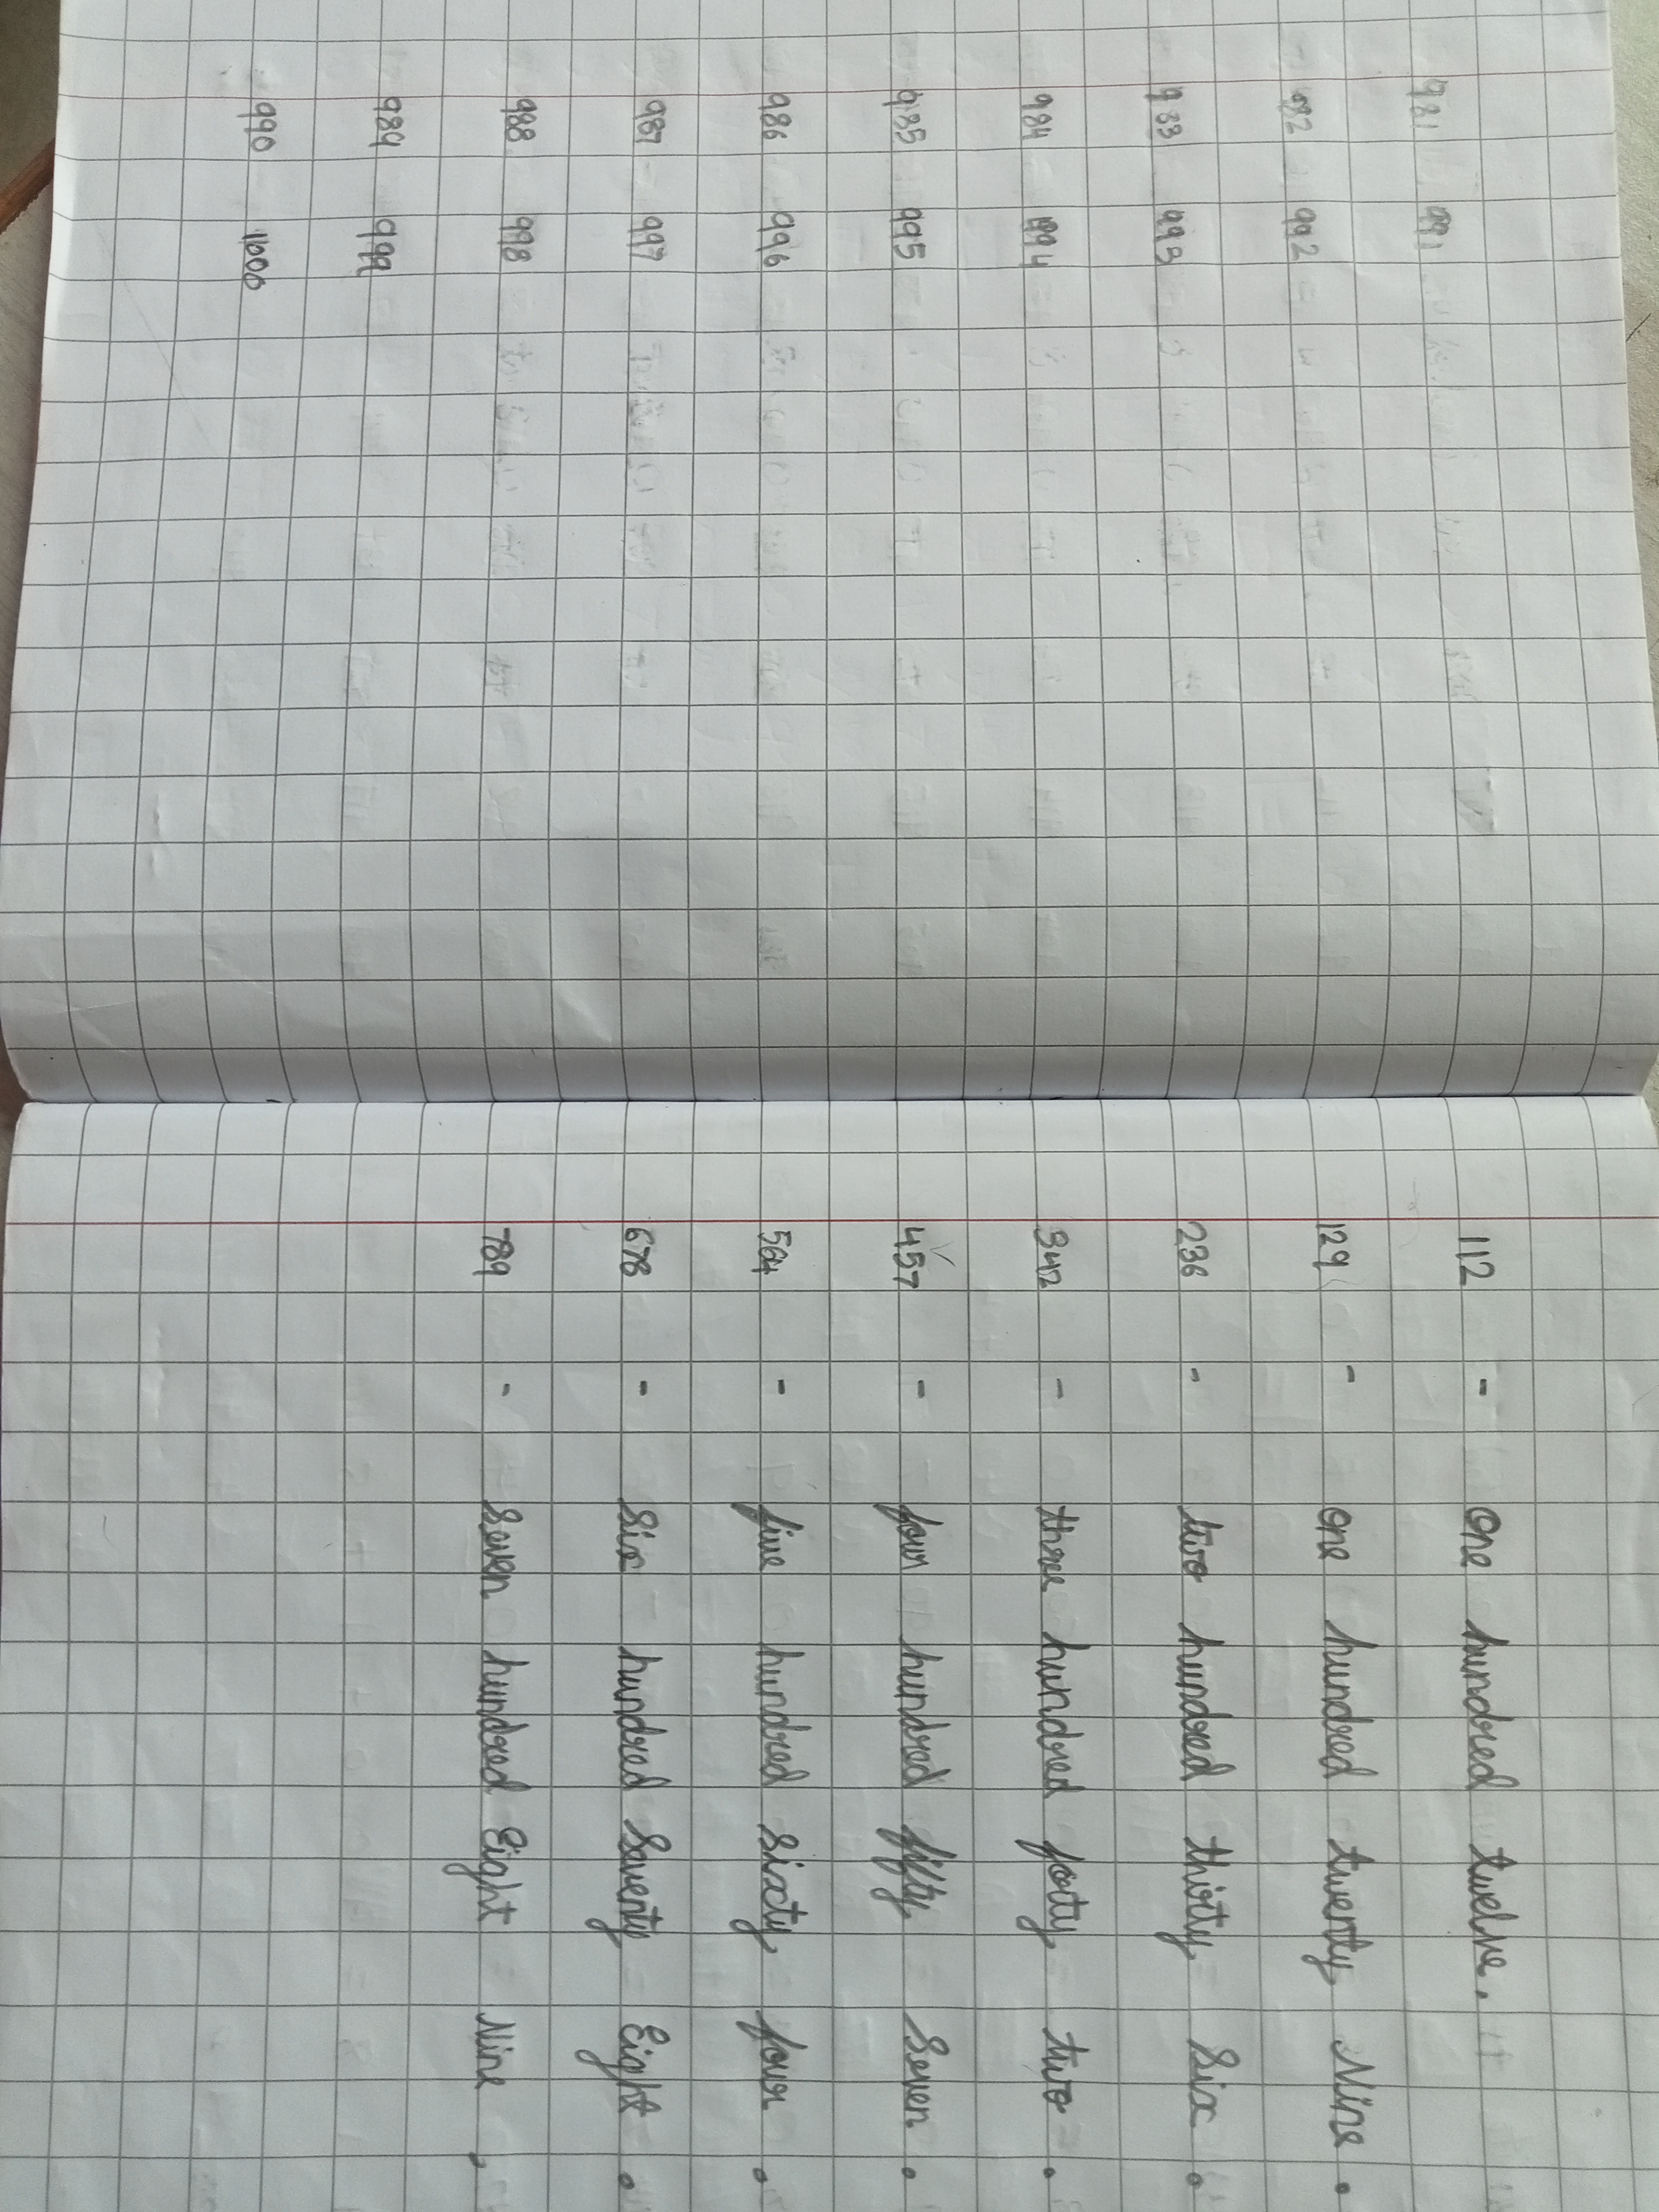 981 991
982 992
983 993
984 994
985 995
986 996
987 997
988 998
989 999
990 1000
112 - One hundred twelve.
129 - One hundred twenty Nine.
236 - two hundred thirty Six.
342 - three hundred forty two.
457 - four hundred fifty Seven.
564 - five hundred sixty four.
678 - Six hundred Seventy Eight.
789 - Seven hundred Eight Nine.